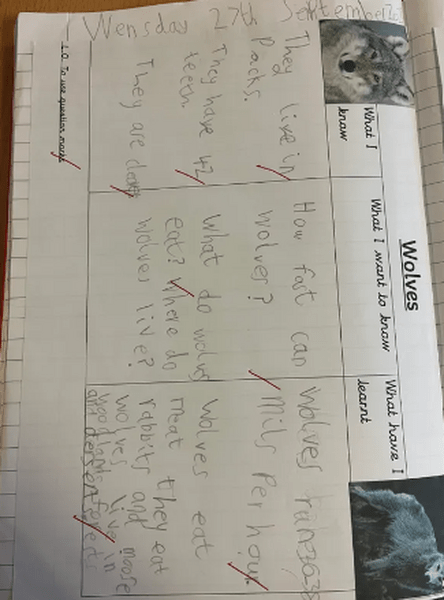 Wensday 27th September
L.O. To use question marks
Wolves
What I
know
What I want to know
What have I
learnt
They live in
Packs.
They have 42
teeth.
They are
How fast can
wolves?
What do wolvs
eat? Where do
wolves live?
Wolves
Mils Per hour
Wolves eat
meat they eat
rabbits and moose
wolves live in
and